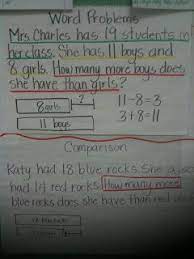 Word Problems
Mrs. Charles has 19 students in
her class. She has 11 boys and
8 girls. How many more boys does
she have than girls?
8 girls ? 11-8=3
11 boys 3+8=11
Comparison
Katy had 18 blue rocks. She also
had 14 red rocks. How many more
blue rocks does she have than red